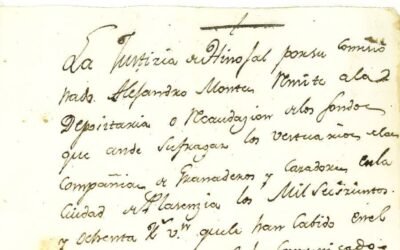 La Justicia de Hinojal por su Comisio
nado Alejandro Montes remite a la
Depositaria o Recaudazion de los fondos
que ande sufragar los vestuarios de las
Compañias de Granaderos y Cazadores en la
Ciudad de Plasenzia los Mil Seiszientos
y ochenta Rs. vn. que le han Cabido en el